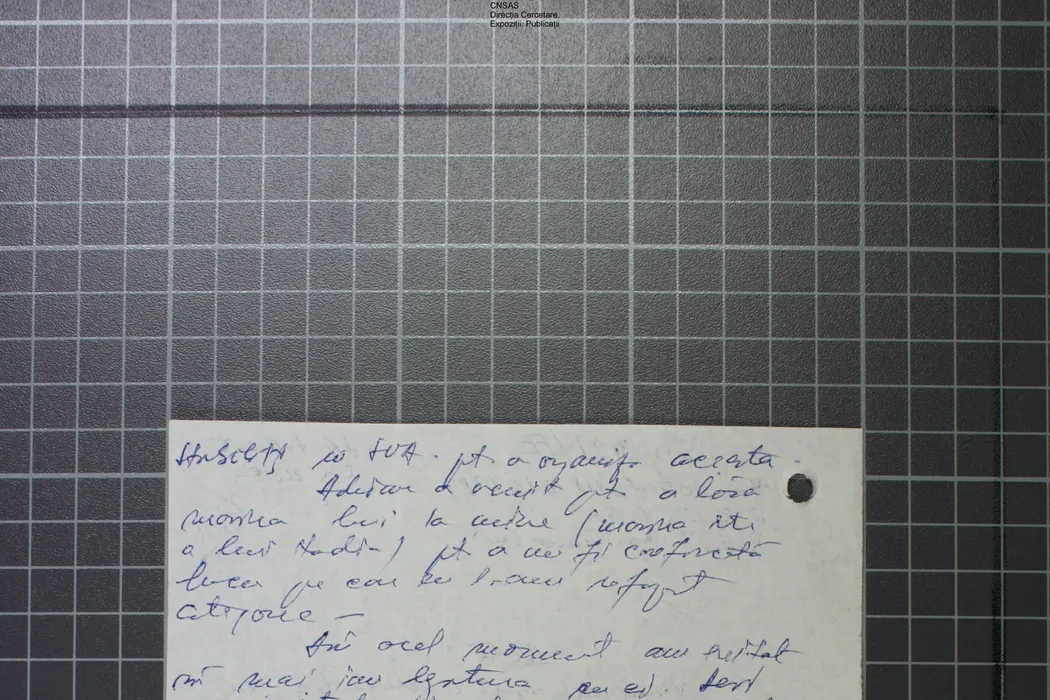 CNSAS
Direcția Cercetare,
Expoziții, Publicații
în SUA. pt a organiza aceasta.
Adrian a venit pt a lăsa
mașina lui la mine (mașina
a lui Nadia) pt a nu fi confiscată
lucru pe care eu l-am refuzat
categoric –
În acel moment am evitat
să mai iau legătura cu ei.